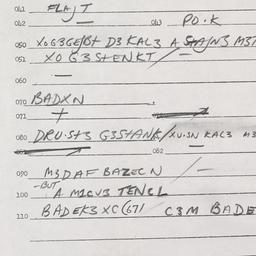 041 FLAJT
042 043 PO.K
050 XOG3GEJBT D3 KAL3 A M3T
051 XO G3STENKT
060
070 BADXN
071 +
080 DRU.ST3 G3STANK/XU.SN KAC3 M3
082
090 M3DAF BAZECN /-
-BUT
100 A M1CU3 TENCL
110 BADEK3 XC(67/ C3M BADE